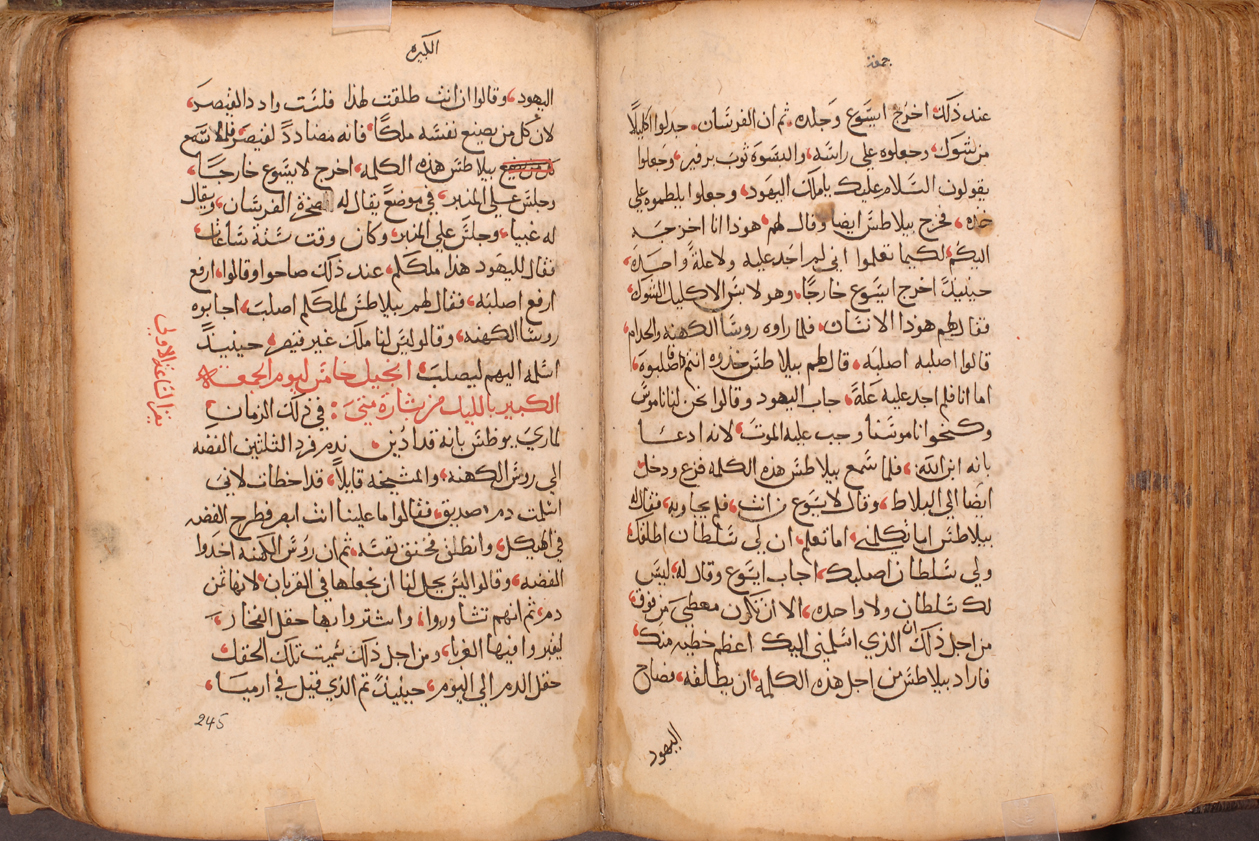 جمعة
عند ذلك اخرج ايسوع وجلده ثم ان الفرسان جدلوا اكليلا
من شوك وجعلوه علي راسه والبسوه ثوب برفير وجعلوا
يقولون السلام عليك يا ملك اليهود وجعلوا يلطموه علي
خده فخرج بيلاطس ايضا وقال لهم هوذا انا اخرجه
اليكم لكيما تعلموا اني لم اجد عليه ولا علة واحده
حينيذ اخرج ايسوع خارجا وهو لابس الاكليل الشوك
فقال لهم هوذا الانسان فلما راوه روسا الكهنه والخدام
قالوا اصلبه اصلبه قال لهم بيلاطس خذوه انتم فاصلبوه
اما انا فلم اجد عليه علة جاب اليهود وقالوا نحن لنا ناموس
وكنحوا ناموسنا وجب عليه الموت لانه ادعا
بانه ابن الله فلما سمع بيلاطس هذه الكلمه فزع ودخل
ايضا الي البلاط وقال لايسوع من انت فلم يجاوبه فقال له
بيلاطس اما تكلمني اما تعلم ان لي سلطان اطلقك
ولي سلطان اصلبك اجاب ايسوع وقال له ليس
لك سلطان ولا واحده الا ان تكون معطي من فوق
من اجل ذلك ان الذي اسلمني اليك اعظم خطيه منك
فاراد بيلاطس من اجل هذه الكلمه ان يطلقه فصاح
اليهود
الكبيره
اليهود وقالوا ان انت طلقت لهذا فلست وادد القيصر
لان كل من يصنع نفسه ملكا فانه مضادد لقيصر فلما سمع
بيلاطس هذه الكلمه اخرج لايسوع خارجا
وجلس علي المنبر في موضع يقال له صخرة الفرسان ويقال
له غبيا وجلس علي المنبر وكان وقت ستة ساعات
فقال لليهود هذا ملككم عند ذلك صاحوا وقالوا ارفع
ارفع اصلبه فقال لهم بيلاطس لملككم اصلب اجابوه
روسا الكهنه وقالو ليس لنا ملك غير قيصر حينيذ
اسلمه اليهم ليصلب انجيل خامس ليوم الجمعه
الكبير بالليل من بشارة متي في ذلك الزمان
لما راي يوطس بانه قد ادين ندم فرد الثلثين الفضه
الي روسا الكهنه والمشيخه قايلا قد اخطات لاني
اسلمت دم صديق فقالوا ما علينا انت ابصر فطرح الفضه
في الهيكل وانطلق فخنق نفسه ثم ان روسا الكهنه اخدوا
الفضه وقالوا ليس يحل لنا ان نجعلها في القربان لانها ثمن
دم ثم انهم تشاوروا واشتروا بها حقل الفخار
ليقبروا فيها الغربا ومن اجل ذلك سميت تلك الحقل
حقل الدم الي اليوم حينيذ تم الذي قيل في ارميا
يقرا الساعة الاولي
245